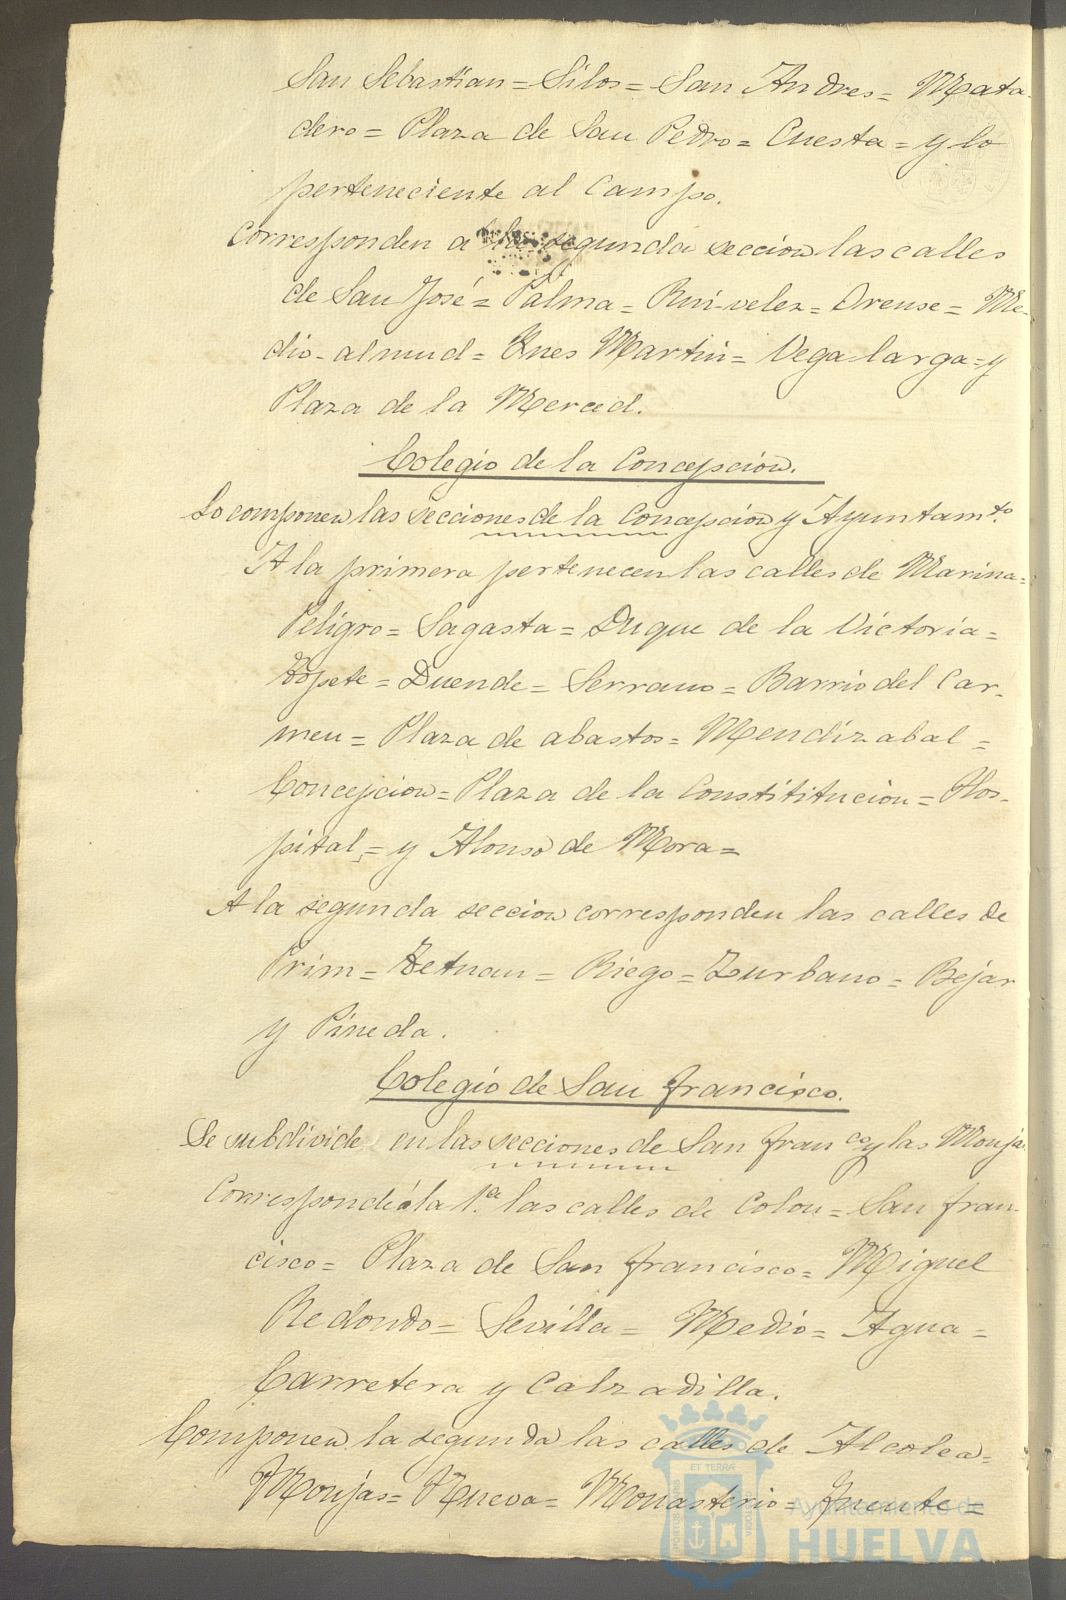 San Sebastian = Silos = San Andres = Mata-
dero = Plaza de San Pedro = Cuesta = y lo
perteneciente al Campo.
Corresponden a la segunda seccion las calles
de San José = Palma = Rui-velez = Orense = Me-
dio-almud = Ynes Martin = Vega-larga = y
Plaza de la Merced.
Colegio de la Concepcion.
Lo componen las secciones de la Concepcion y Ayuntamto.
A la primera pertenecen las calles de Marina =
Peligro = Sagasta = Duque de la Victoria =
Topete = Duende = Serrano = Barrio del Car-
men = Plaza de abastos = Mendizabal =
Concepcion = Plaza de la Constititucion = Hos-
pital, = y Alonso de Mora =
A la segunda seccion corresponden las calles de
Prim = Tetuan = Riego = Zurbano = Bejar
y Pineda.
Colegio de San Francisco.
Se subdivide en las secciones de San Franco y las Monjas
Corresponde á la 1.ª las calles de Colon = San Fran-
cisco = Plaza de San Francisco = Miguel
Redondo = Sevilla = Medio = Agua =
Carretera y Calzadilla.
Componen la segunda las calles de Alcolea =
Monjas = Nueva = Monasterio = Fuente =
Ayuntamiento de
HUELVA